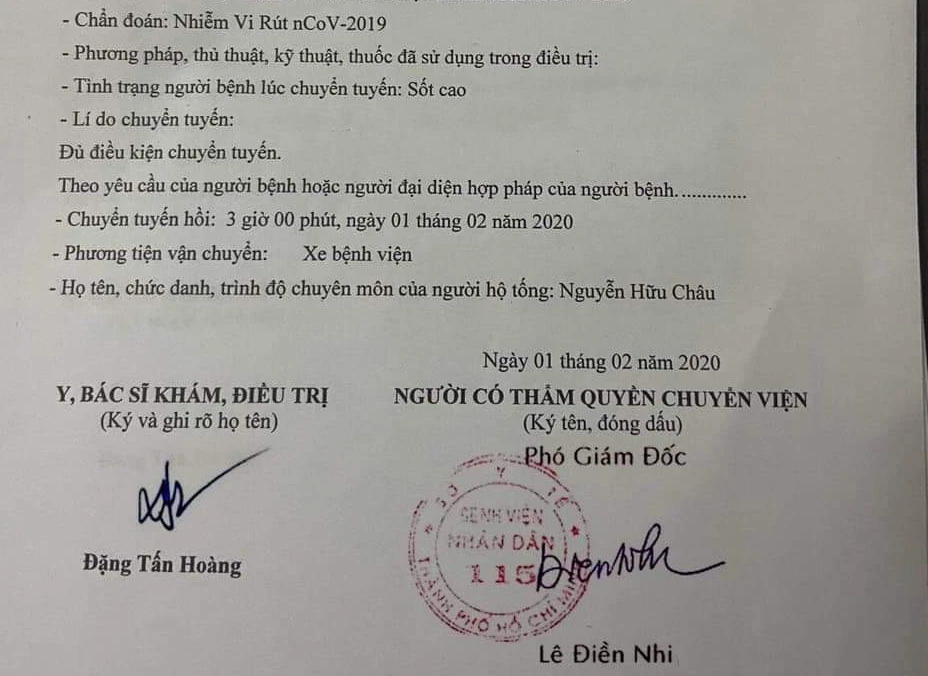 - Chẩn đoán: Nhiễm Vi Rút nCoV-2019
- Phương pháp, thủ thuật, kỹ thuật, thuốc đã sử dụng trong điều trị:
- Tình trạng người bệnh lúc chuyển tuyến: Sốt cao
- Lí do chuyển tuyến:
Đủ điều kiện chuyển tuyến.
Theo yêu cầu của người bệnh hoặc người đại diện hợp pháp của người bệnh.............
- Chuyển tuyến hồi: 3 giờ 00 phút, ngày 01 tháng 02 năm 2020
- Phương tiện vận chuyển: Xe bệnh viện
- Họ tên, chức danh, trình độ chuyên môn của người hộ tống: Nguyễn Hữu Châu
Ngày 01 tháng 02 năm 2020
Y, BÁC SĨ KHÁM, ĐIỀU TRỊ
(Ký và ghi rõ họ tên)
Đặng Tấn Hoàng
NGƯỜI CÓ THẨM QUYỀN CHUYỂN VIỆN
(Ký tên, đóng dấu)
Phó Giám Đốc
SỞ Y TẾ
BỆNH VIỆN
NHÂN DÂN
115
THÀNH PHỐ HỒ CHÍ MINH
Lê Điền Nhi